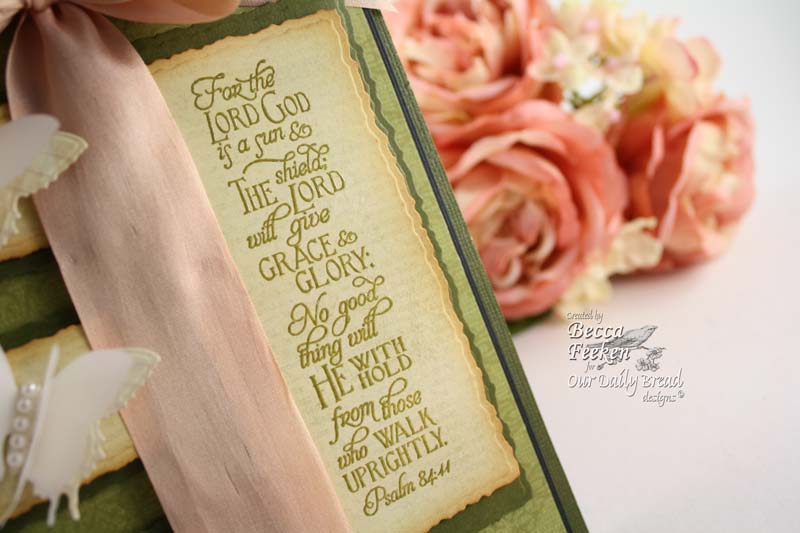 For the
LORD GOD
is a sun &
shield;
THE LORD
will give
GRACE &
GLORY;
No good
thing will
HE WITH
HOLD
from those
who WALK
UPRIGHTLY.
Psalm 84:11
Created by
Becca
Feeken
for
Our Daily Bread
designs ©